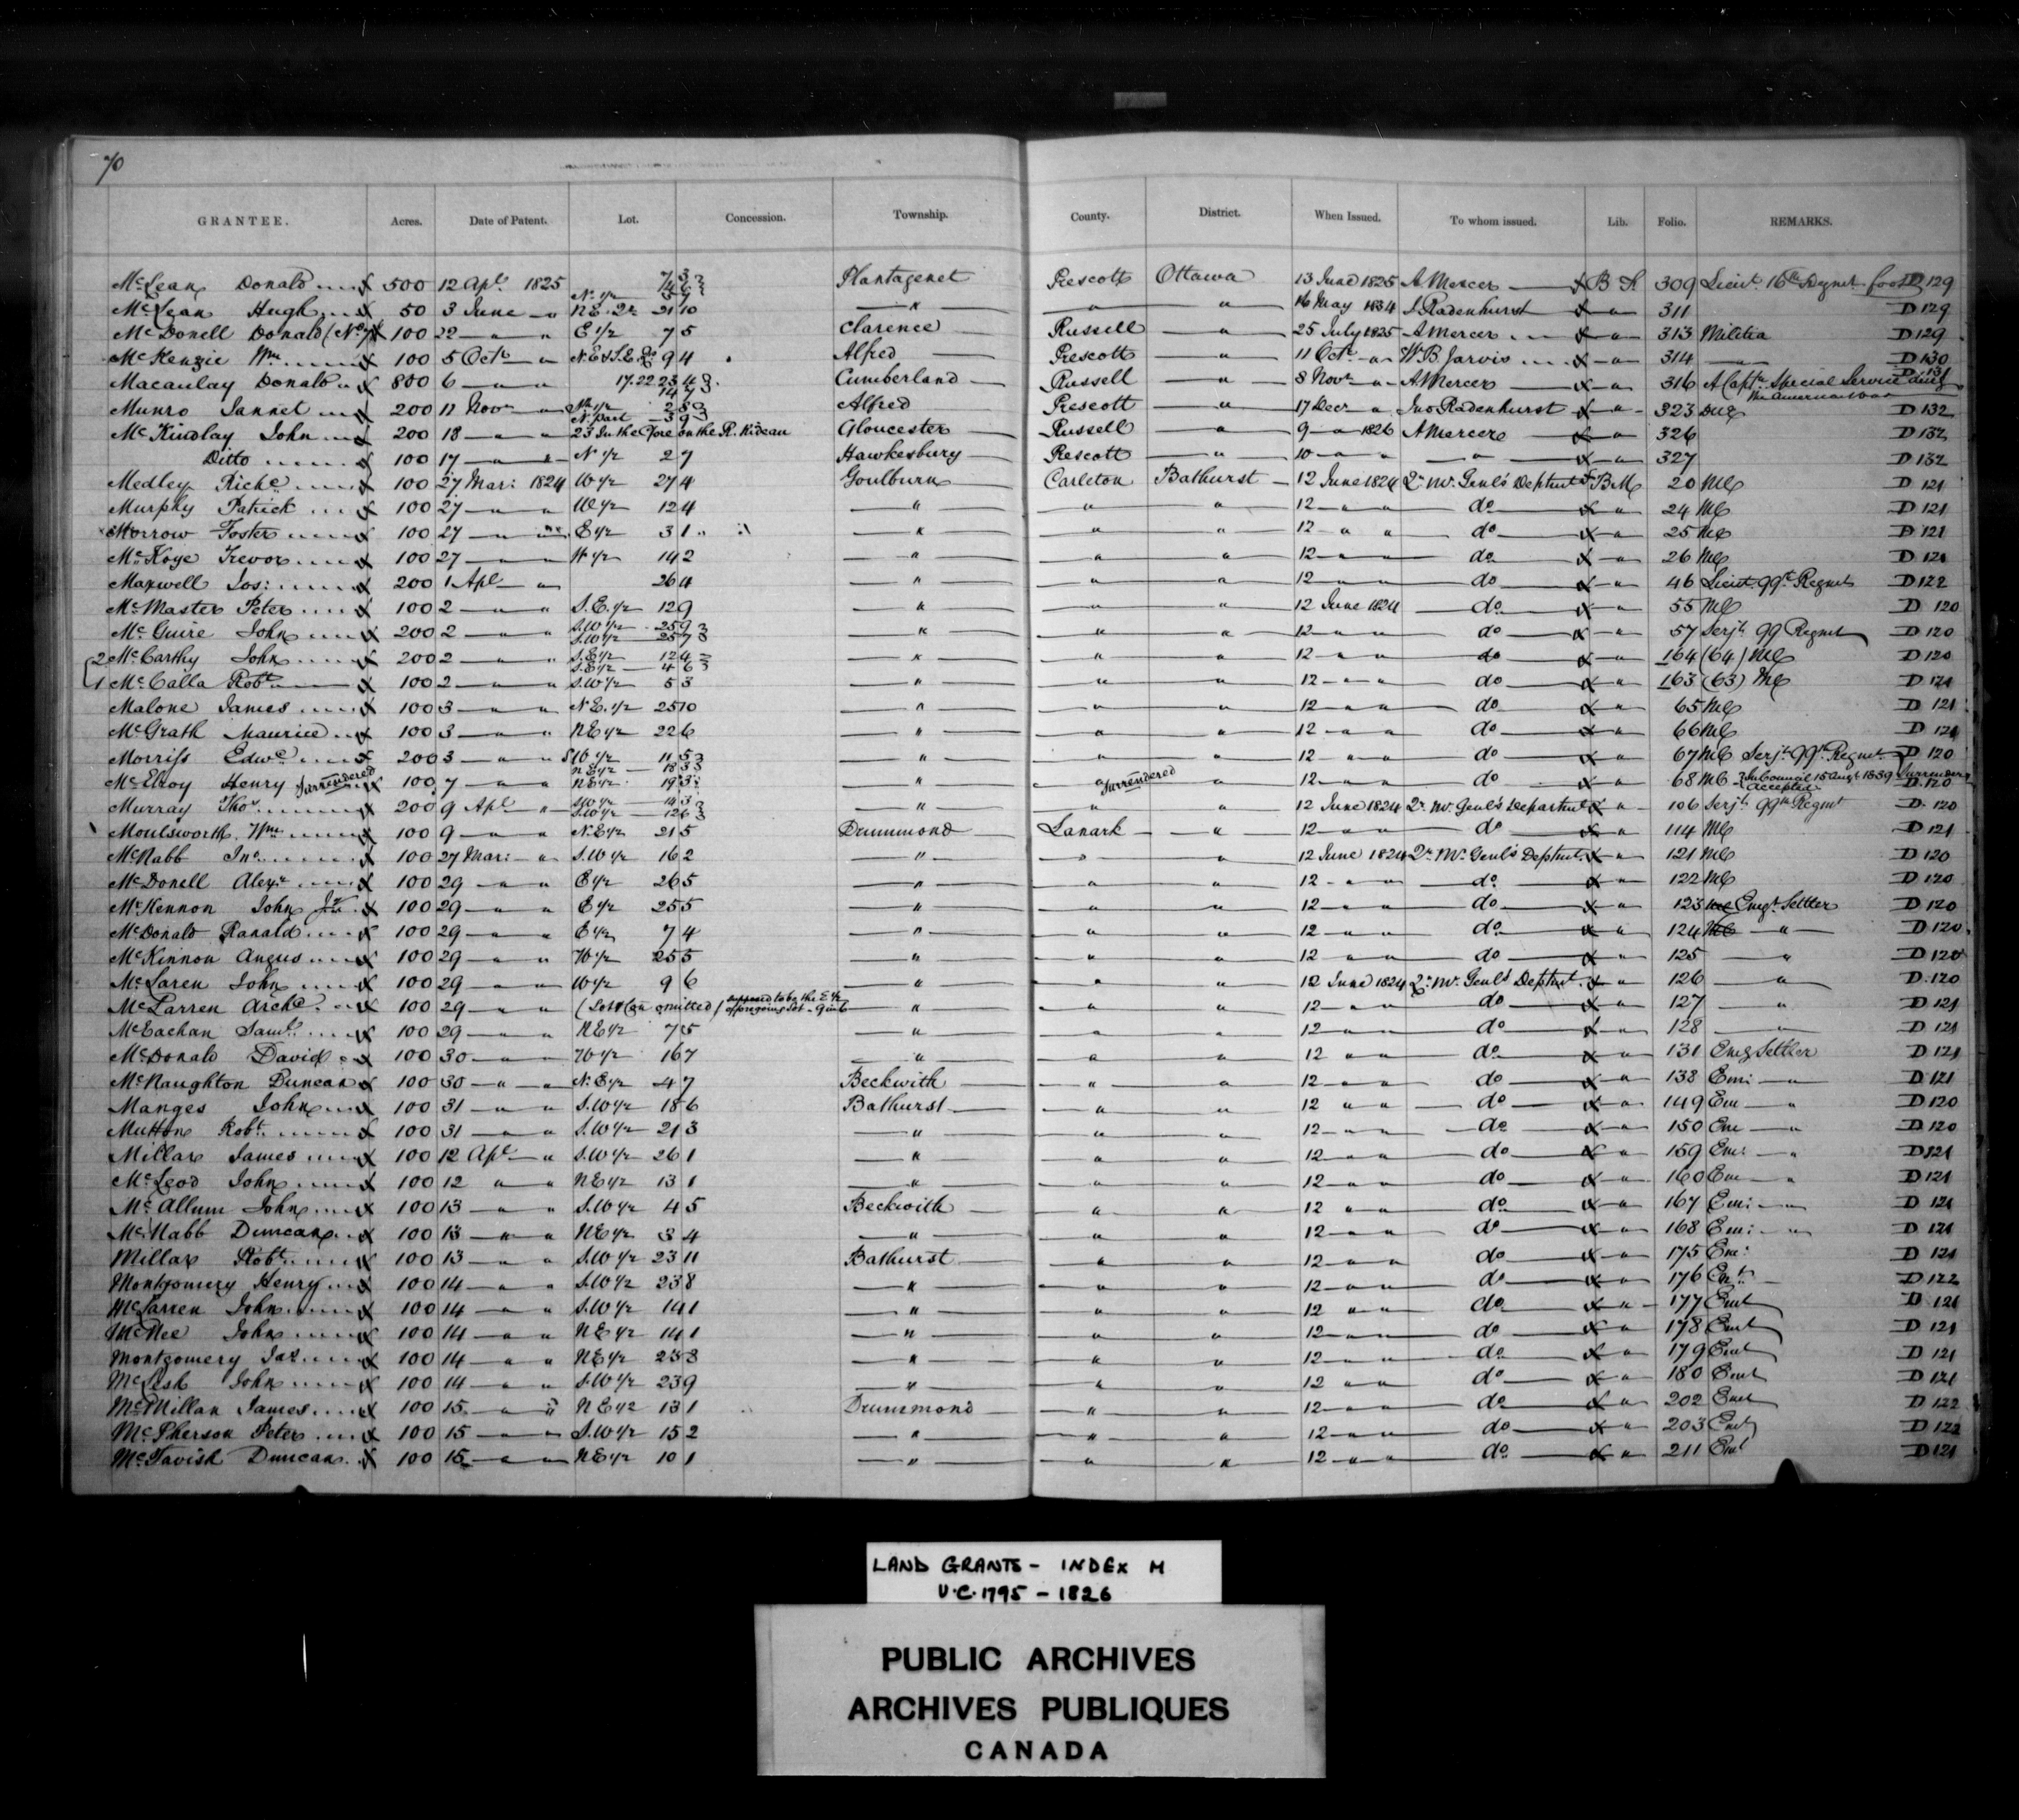 70
GRANTEE. Acres. Date of Patent. Lot. Concession. Township. County. District. When Issued. To whom issued. Lib. Folio. REMARKS.
McLean Donald 500 12 Apl. 1825 Plantagenet Prescott Ottawa 13 June 1825 A Mercer B 309 Lieut 16th Regmt foot D 129
McLean Hugh 50 3 June " 21 10 " " " 16 May 1834 J Radenhurst " 311 D 129
McDonell Donald 100 22 " " E 1/2 7 5 Clarence Russell " 25 July 1825 A Mercer " 313 Militia D 129
McKenzie Wm 100 5 Octr " 9 4 Alfred Prescott " 11 Octr " W. B. Jarvis " 314 D 130
Macaulay Donald 800 6 " " 17. 22 23 Cumberland Russell " 8 Novr " A Mercer " 316 A Captn Special Service during the American War D 131
Munro Jannet 200 11 Novr " Alfred Prescott " 17 Decr " Jno Radenhurst " 323 D 132
McKinlay John 200 18 " " 23 In the on the R. Rideau Gloucester Russell " 9 " 1826 A Mercer " 326 D 132
Ditto 100 17 " " N 1/2 2 7 Hawkesbury Prescott " 10 " " " " 327 D 132
Medley Richd 100 27 Mar: 1824 W 1/2 27 4 Goulburn Carleton Bathurst 12 June 1824 Qr Mr Genl's Deptmt B M 20 D 121
Murphy Patrick 100 27 " " W 1/2 12 4 " " " 12 " " do " 24 D 121
Morrow Foster 100 27 " " E 1/2 3 1 " " " 12 " " do " 25 D 121
McKoye Trevor 100 27 " " W 1/2 14 2 " " " 12 " " do " 26 D 121
Maxwell Jos: 200 1 Apl " 26 4 " " " 12 " " do " 46 Lieut 99th Regmt D 122
McMaster Peter 100 2 " " S.E. 1/2 12 9 " " " 12 June 1824 do " 55 D 120
McGuire John 200 2 " " S.W 1/2 25 9 S.W 1/2 25 7 " " " 12 " " do " 57 Serjt 99 Regmt D 120
2 McCarthy John 200 2 " " S.E 1/2 12 4 S.E 1/2 4 6 " " " 12 " " do " 164 (64) D 120
1 McCalla Robt 100 2 " " S.W 1/2 5 3 " " " 12 " " do " 163 (63) D 121
Malone James 100 3 " " N E. 1/2 25 10 " " " 12 " " do " 65 D 121
McGrath Maurice 100 3 " " N E 1/2 22 6 " " " 12 " " do " 66 D 121
Morriss Edwd 200 3 " " S W 1/2 11 5 " " " 12 " " do " 67 Serjt 99th Regmt D 120
McElroy Henry Surrendered 100 7 " " N E 1/2 19 3 " " Surrendered " 12 " " do " 68 In Council 15 Augt 1839 Surrender accepted D 120
Murray Thos 200 9 Apl " S W 1/2 14 3 S.W 1/2 12 6 " " " 12 June 1824 Qr Mr Genl's Departmt " 106 Serjt 99th Regmt D 120
Moulsworth Wm 100 9 " " N.E 1/2 21 5 Drummond Lanark " 12 " " do " 114 D 121
McNabb Jno 100 27 Mar: " S.W 1/2 16 2 " " " 12 June 1824 Qr Mr Genl's Deptmt " 121 D 120
McDonell Alexr 100 29 " " E 1/2 26 5 " " " 12 " " do " 122 D 120
McKennon John Jr 100 29 " " E 1/2 25 5 " " " 12 " " do " 123 Emgt Settler D 120
McDonald Ranald 100 29 " " E 1/2 7 4 " " " 12 " " do " 124 " D 120
McKinnon Angus 100 29 " " W 1/2 25 5 " " " 12 " " do " 125 " D 120
McLaren John 100 29 " " W 1/2 9 6 " " " 12 June 1824 Qr Mr Genl's Deptmt " 126 " D 120
McLarren Archd 100 29 " " (Lot & Con omitted / supposed to be the E 1/2 of foregoing Lot " " " 12 " " do " 127 " D 121
McEachan Saml 100 29 " " N E 1/2 7 5 " " " 12 " " do " 128 " D 121
McDonald David 100 30 " " W 1/2 16 7 " " " 12 " " do " 131 Emg Settler D 121
McNaughton Duncan 100 30 " " N. E 1/2 4 7 Beckwith " " 12 " " do " 138 Emi " D 121
Manges John 100 31 " " S.W 1/2 18 6 Bathurst " " 12 " " do " 149 Em " D 120
Mutton Robt 100 31 " " S.W 1/2 21 3 " " " 12 " " do " 150 Em " D 120
Millar James 100 12 Apl " S.W 1/2 26 1 " " " 12 " " do " 159 Em: " D 121
McLeod John 100 12 " " N E 1/2 13 1 " " " 12 " " do " 160 Em " D 121
McAllum John 100 13 " " S.W 1/2 4 5 Beckwith " " 12 " " do " 167 Em: " D 121
McNabb Duncan 100 13 " " N E 1/2 3 4 " " " 12 " " do " 168 Em: " D 121
Millar Robt 100 13 " " S.W 1/2 23 11 Bathurst " " 12 " " do " 175 Em: D 121
Montgomery Henry 100 14 " " S.W 1/2 23 8 " " " 12 " " do " 176 Emt D 122
McLarren John 100 14 " " S.W 1/2 14 1 " " " 12 " " do " 177 Emt D 121
McNee John 100 14 " " N E 1/2 14 1 " " " 12 " " do " 178 Emt D 121
Montgomery Jas 100 14 " " N E 1/2 23 3 " " " 12 " " do " 179 Emt D 121
McLish John 100 14 " " S.W 1/2 23 9 " " " 12 " " do " 180 Emt D 121
McMillan James 100 15 " " N E 1/2 13 1 Drummond " " 12 " " do " 202 Emt D 122
McPherson Peter 100 15 " " S.W 1/2 15 2 " " " 12 " " do " 203 Emt D 122
McTavish Duncan 100 15 " " N E 1/2 10 1 " " " 12 " " do " 211 Emt D 121
LAND GRANTS - INDEX M
U.C. 1795 - 1826
PUBLIC ARCHIVES
ARCHIVES PUBLIQUES
CANADA